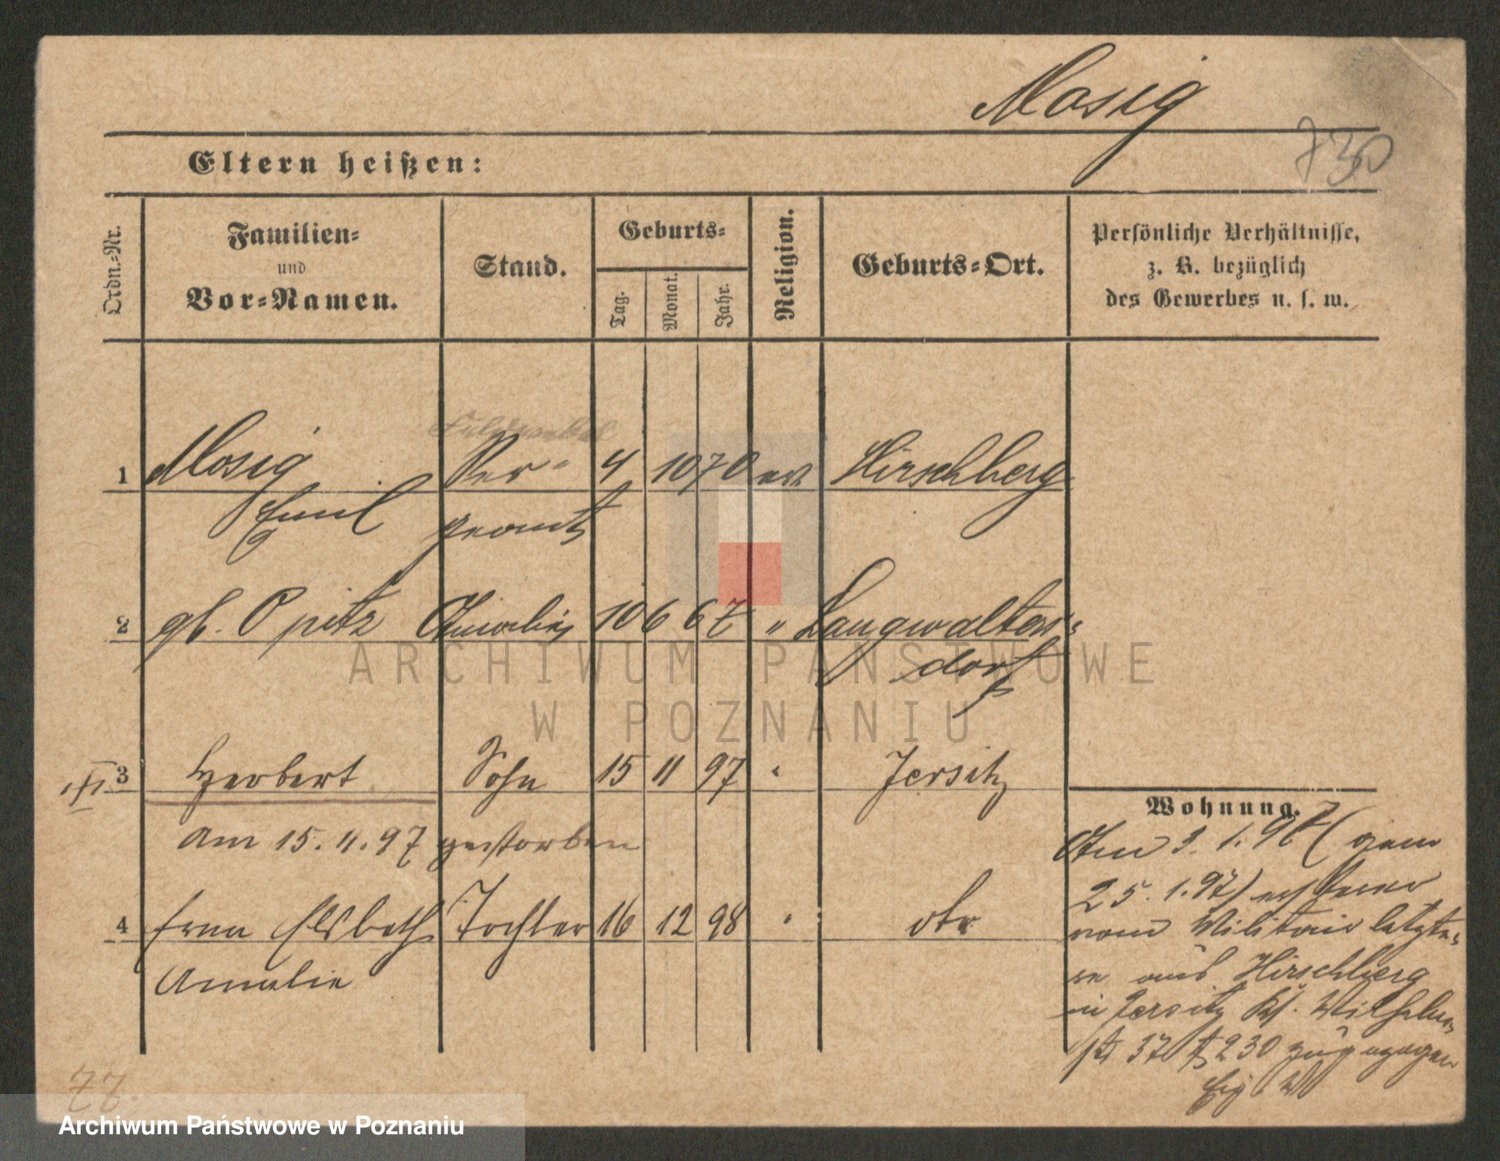 Mosig
730
Eltern heißen:
Ordn.-Nr.
Familien-
und
Vor-Namen.
Stand.
Geburts-
Tag.
Monat.
Jahr.
Religion.
Geburts-Ort.
Persönliche Verhältnisse,
z. B. bezüglich
des Gewerbes u. s. w.
Feldwebel
1 Mosig 4 10 70 ev Hirschberg
Emil
2 gb. Opitz Amalie 10 6 67 " Langwalters-
dorf
3 Herbert Sohn 15 11 97 " Jersitz
Am 15.11.97 gestorben
4 Erna Elsbeth Tochter 16 12 98 " otr
Amalie
Wohnung.
Am 3. 1. 97 (vom
25. 1. 97) ersterer
vom Militair letzte-
re aus Hirschberg
in Jersitz Kf. Wilhelm-
str 37 230 zugezogen
77
ARCHIWUM PAŃSTWOWE
W POZNANIU
Archiwum Państwowe w Poznaniu